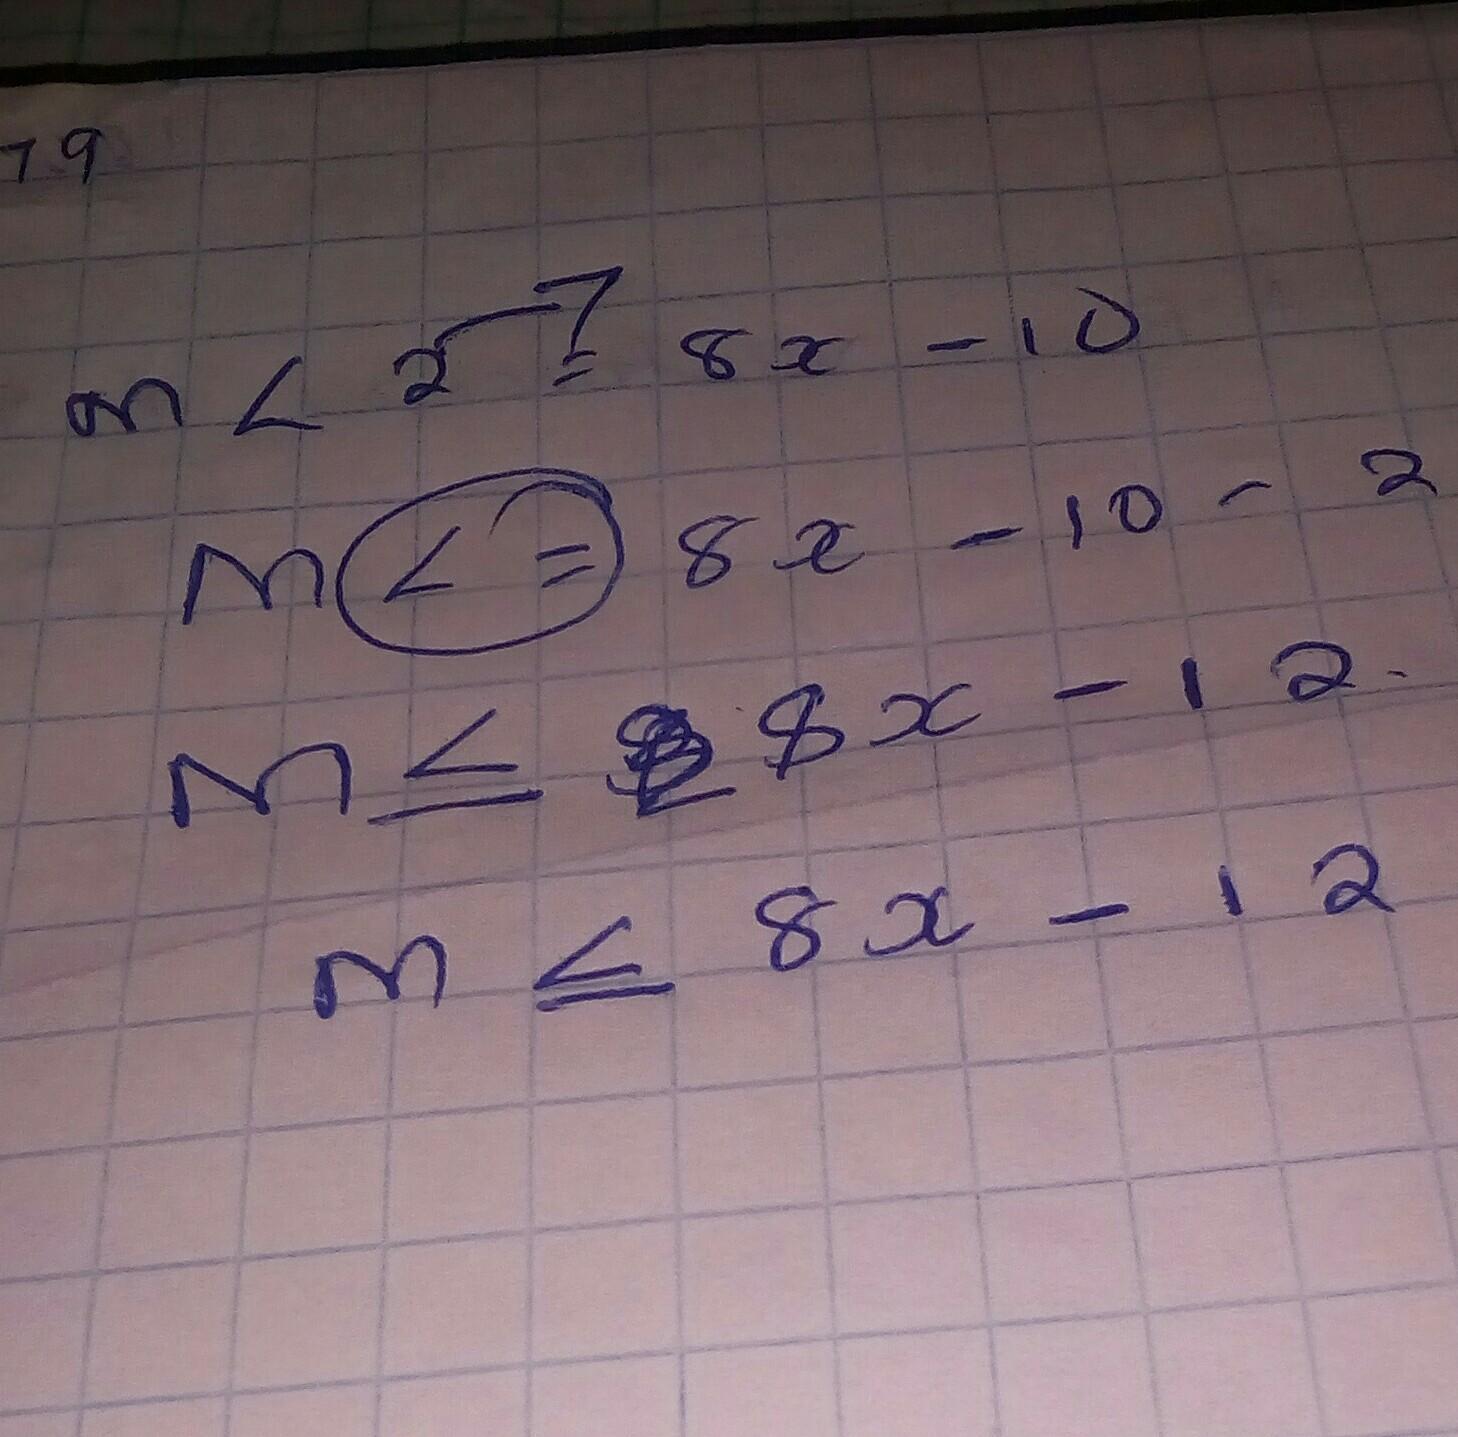 79
m < 2 = 8x - 10
m < = 8x - 10 - 2
m ≤ 8x - 12.
m ≤ 8x - 12